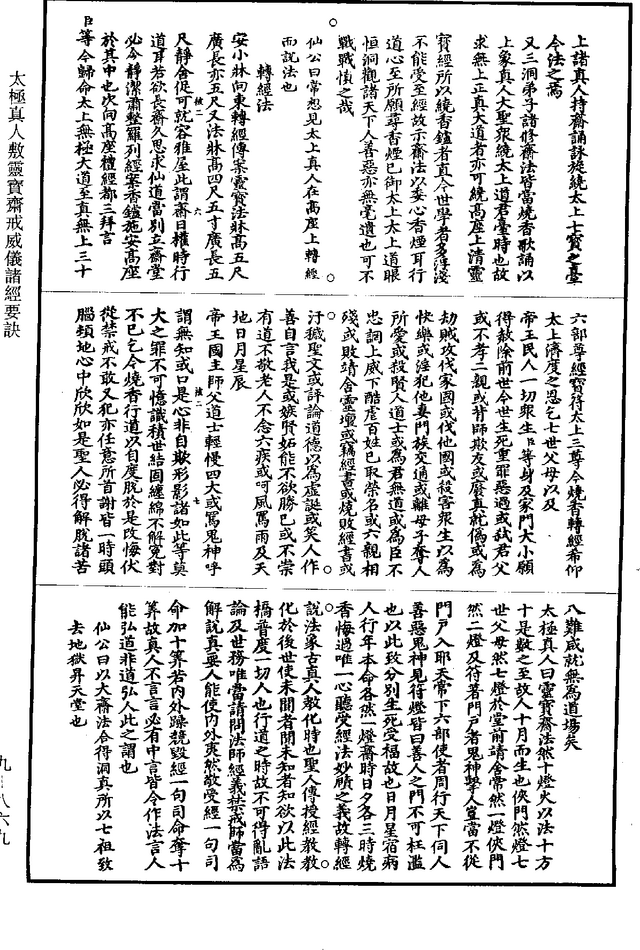 上諸真人持齋誦詠旋繞太上七寶之臺
今法之焉
又三洞弟子諸修齋法皆當燒香歌誦以
上象真人大聖衆繞太上道君臺時也故
求無上正真大道者亦可繞高座上清靈
寶經所以繞香鑪者直今世學者多浮淺
不能受至經故示齋法以妾心香煙耳行
道心至所願尋香煙已御太上太上道眼
恒洞觀諸天下人善惡亦無毫遺也可不
戰戰慎之哉
仙公曰常想見太上真人在高座上轉經
而説法也
轉經法
安小牀向東轉經傳案靈寶法牀高五尺
廣長亦五尺又法牀高四尺五寸廣長五
尺靜舍促可就容雅屋此謂齋日權時行
道耳若欲長齋久思求仙道當別立齋堂
必令靜潔肅整羅列經案香鑪施安高座
於其中也次向高座禮經都三拜言
臣等今歸命太上無極大道至真無上三十
六部尊經寶符太上三尊今燒香轉經希仰
太上濟度之恩乞七世父母以及
帝王民人一切衆生臣等身及家門大小願
得赦除前世今世生死重罪惡過或弑君父
或不孝二親或背師欺友或廢真就僞或為
劫賊攻伐家國或伐他國或殺害衆生以為
快樂或淫犯他妻門族交通或離母子奪人
所愛或殺賢人道士或為君無道或為臣不
忠調上威下酷虐百姓已取榮名或六親相
殘或敗靖舍靈壇或竊經書或燒敗經書或
汙穢聖文或評論道德以為虛誕或笑人作
善自言我是或嫉賢妬能不欲勝已或不崇
有道不敬老人不念六疾或呵風罵雨及天
地日月星辰
帝王國主師父道士輕慢四大或罵鬼神呼
謂無知或口是心非自欺形影諸如此等莫
大之罪不可憶識積世結固纏綿不解寃對
不已乞今燒香行道以自度脱於是改悔伏
從禁戒不敢又犯亦任意所首謝皆一時頭
腦頓地心中欣欣如是聖人必得解脱諸苦
八難成就無為道場矣
太極真人曰靈寶齋法然十燈火以法十方
十是數之至故人十月而生也俠門然燈七
世父母然七燈於堂前請舍常然一燈俠門
然二燈及符著門戶者鬼神擊人豈當不從
門戶入耶天常下六部使者周行天下伺人
善惡鬼神見符燈皆曰善人之門不可枉濫
也以此致分別生死受福故也日月星宿病
人行年本命各然一燈齋時日夕各三時燒
香悔過唯一心聽受經法妙賾之義故轉經
説法象古真人教化時也聖人傳授經教教
化於後世使未聞者聞未知者知欲以此法
橋普度一切人也行道之時故不可得亂語
論及世務唯當請問法師經義禁戒師當為
解説真要人能使内外夷然敬受經一句司
命加十筭若内外躁競毁經一句司命奪十
筭故真人不言言必有中言皆令作法言人
能弘道非道弘人此之謂也
仙公曰以大齋法合得洞真所以七祖致
去地獄昇天堂也
太極真人敷靈寶齋戒威儀諸經要訣
九—八六九